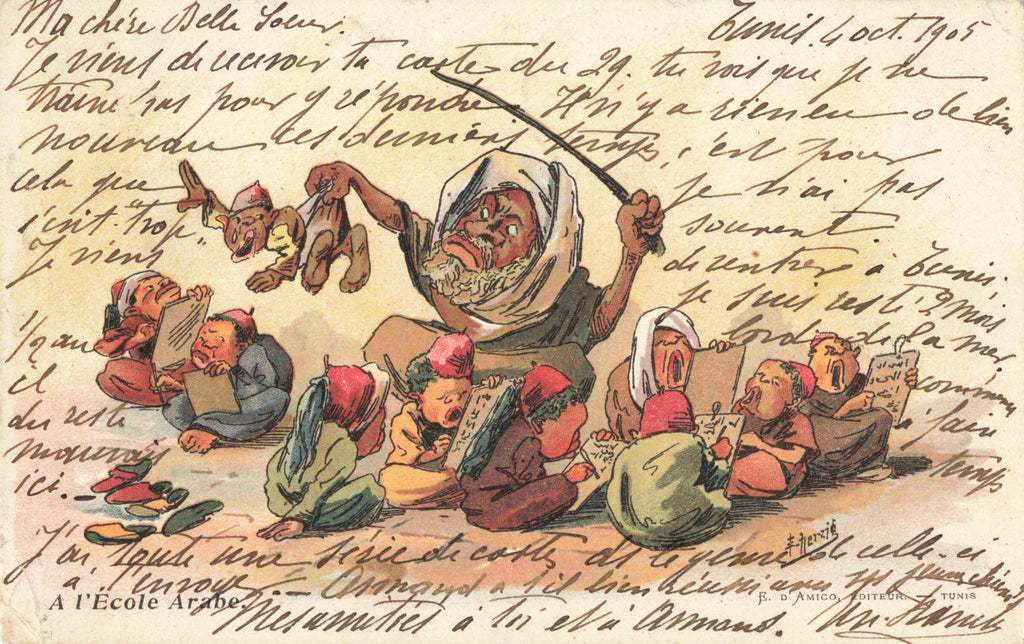 Ma chère Belle Soeur.
Tunis. 4 oct. 1905
Je viens de recevoir ta carte du 29. tu vois que je ne
traîne pas pour y répondre Il n'y a rien eu de bien
nouveau ces derniers temps, c'est pour
cela que je n'ai pas
écrit trop souvent
Je viens de rentrer à Tunis.
je suis resté 2 mois
1/2 au bord de la mer
il commence
du reste à faire
mauvais temps
ici.
J'ai toute une série de cartes de ce genre de celle-ci
à envoyer. Armand a t'il bien réussi avec
Mes amitiés à toi et à Armand.
E. Herzig
A l'École Arabe.
E. D'AMICO, ÉDITEUR. — TUNIS